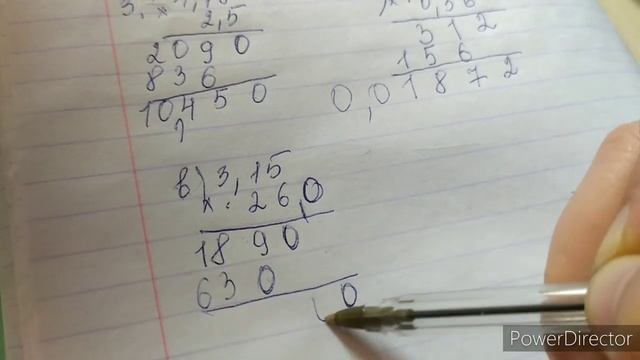 2,5
2090
836
10450
312
156
0,01872
в) 3,15
× 26,0
1890
630
0
PowerDirector